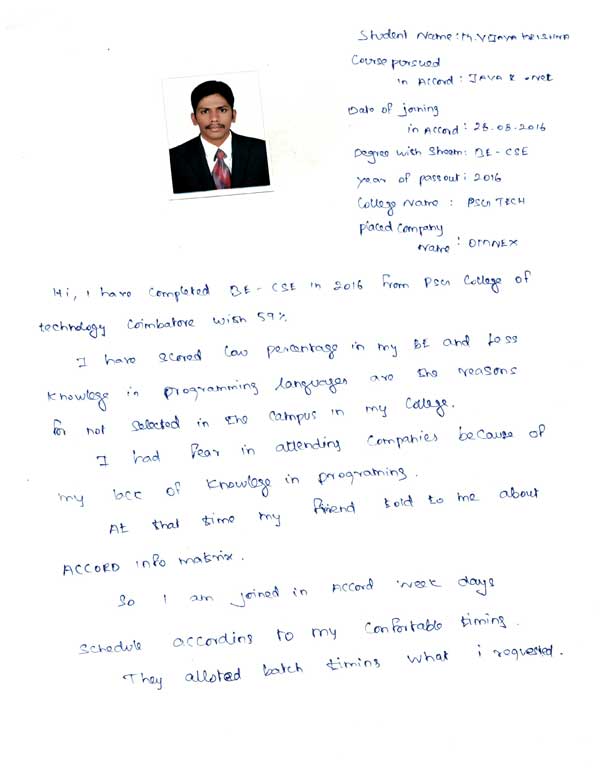 Student Name: M. VIJAYA KRISHNA
Course pursued
in Accord : JAVA & .Net
Date of joining
in Accord : 25-05-2016
Degree with Stream: BE - CSE
year of passout : 2016
College Name : PSG TECH
placed Company
Name : OMNEX
Hi, I have completed BE - CSE in 2016 from PSG College of
technology Coimbatore with 59%
I have scored low percentage in my BE and Less
knowlege in programming languages are the reasons
for not selected in the campus in my College.
I had fear in attending Companies because of
my lack of knowlege in programing.
At that time my friend told to me about
ACCORD info matrix.
So I am joined in Accord week days
schedule according to my Confortable timing.
They alloted batch timing what i requested.